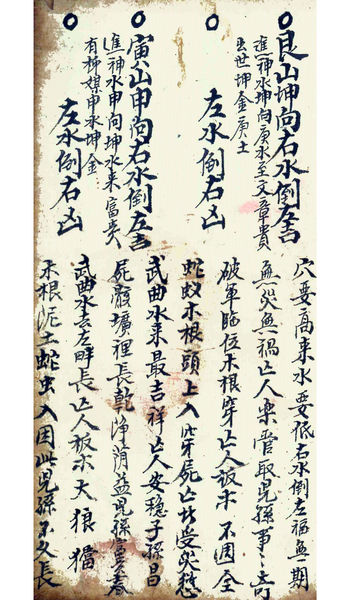 艮山坤向右水倒左吉
進神水坤向庚水至文章貴
出世坤金庚土
左水倒右凶
寅山申向右水倒左吉
進神水申向坤水來富貴
有神媒申水坤金
左水倒右凶
穴要高來水要低右水倒左福無期
無災無禍亡人樂管取兒孫事事奇
破軍臨位木根穿亡人被木不週全
蛇蚁木根頭上入穿屍亡者受災愆
武曲水來最吉祥亡人安穩子孫昌
屍骸壙裡長乾淨消益兒孫富貴春
武曲水去左畔長亡人被木大狼獷
木根泥土蛇虫入因此兒孫不久長